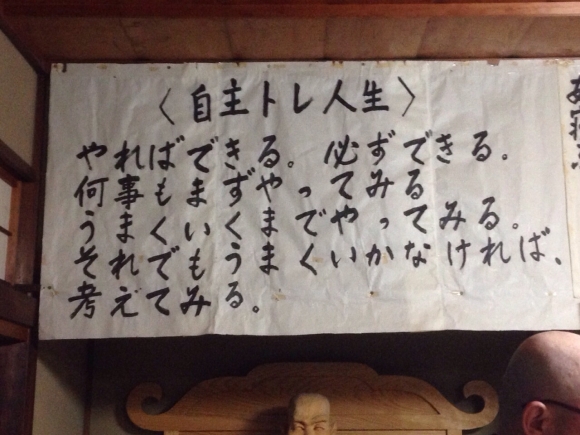 〈自主トレ人生〉
やればできる。必ずできる。
何事もまずやってみる
うまくいくまでやってみる。
それでもうまくいかなければ、
考えてみる。